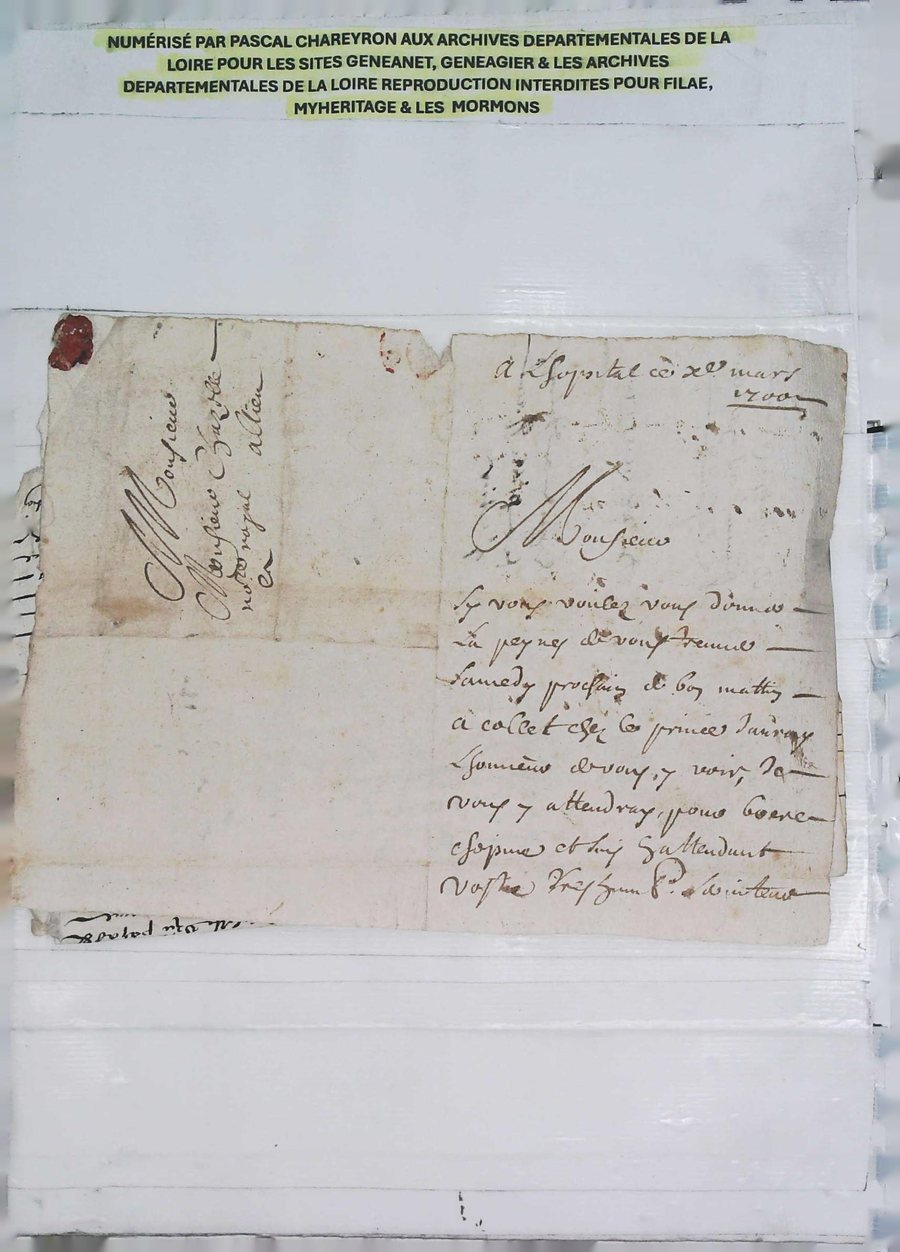 NUMÉRISÉ PAR PASCAL CHAREYRON AUX ARCHIVES DEPARTEMENTALES DE LA
LOIRE POUR LES SITES GENEANET, GENEAGIER & LES ARCHIVES
DEPARTEMENTALES DE LA LOIRE REPRODUCTION INTERDITES POUR FILAE,
MYHERITAGE & LES MORMONS
Monsieur
Monsieur
royal
A Lhopital ce xe mars
1700
Monsieur
Sy vous voulez vous donner
La peyne de vous
samedy prochain de bon mattin
a collet chez le prince Jauray
Lhonneur de vous y voir, Je
vous y attendray pour boere
chopine et suis
vostre tres humble serviteur